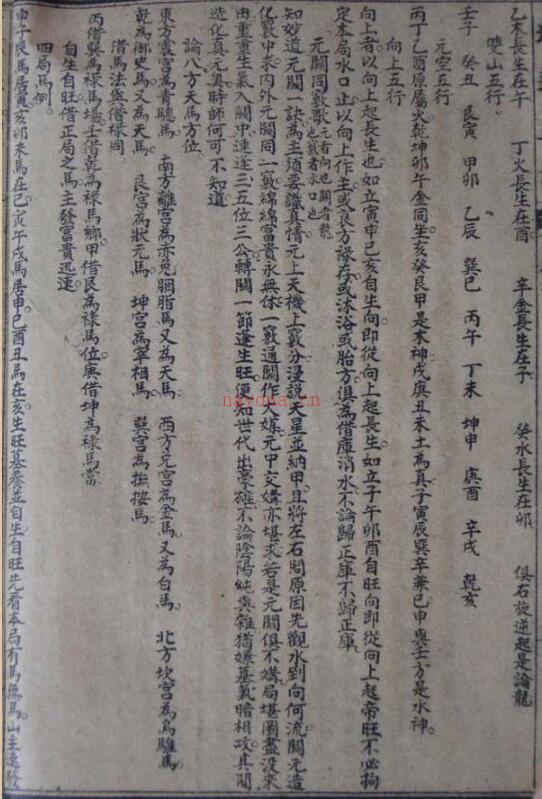 乙木長生在午　丁火長生在酉　辛金長生在子　癸水長生在卯　俱右旋逆起是論龍
雙山五行
壬子　癸丑　艮寅　甲卯　乙辰　巽巳　丙午　丁未　坤申　庚酉　辛戌　乾亥
元空五行
丙丁乙酉原屬火乾坤卯午金同坐亥癸艮甲是木神戌庚丑未土為真子寅辰巽辛兼巳申與壬方是水神
向上五行
向上者以向上起長生也如立寅申巳亥自生向即從向上起長生如立子午卯酉自旺向即從向上起帝旺不必拘
定本局水口止以向上作主或良方祿存或沐浴或胎方俱為借庫消水不論歸正庫不歸正庫
元關同竅歌 元者向也關者龍也竅者水口也
知妙道元關一訣為主須要識真情元上天機上竅分漫說天星並納甲且將左右問原因先觀水到向何流關元造
化竅中求內外元關同一竅綿綿富貴永無休一竅通關作大媒元中交媾亦堪求若是元關俱不媾局堪圖畫沒來
由重重生氣入關中連逢三五位三公轉關一節逢生旺便知世代出豪雄不論陰陽純與雜猶嫌墓氣暗相攻其間
造化真元奧時師何可不知道
論八方天馬方位
東方震宮為青驄馬　南方離宮為赤兔胭脂馬又為天馬　西方兌宮為金馬又為白馬　北方坎宮為烏騅馬
乾為御史馬又為天馬　艮宮為狀元馬　坤宮為宰相馬　巽宮為撫按馬
借馬法與借祿同
丙借巽為祿馬塲壬借乾為祿馬鄉甲借艮為祿馬位庚借坤為祿馬當
自生自旺借正局之馬主發富貴迅速
四局馬例
申子辰馬居寅亥卯未馬在巳寅午戌馬居申巳酉丑馬在亥生旺墓養並自生自旺先看本局有馬無馬山主速發
nayona.cn